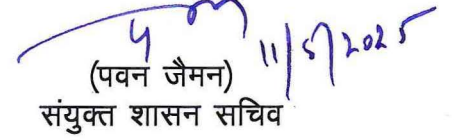 11/5/2025
(पवन जैमन)
संयुक्त शासन सचिव